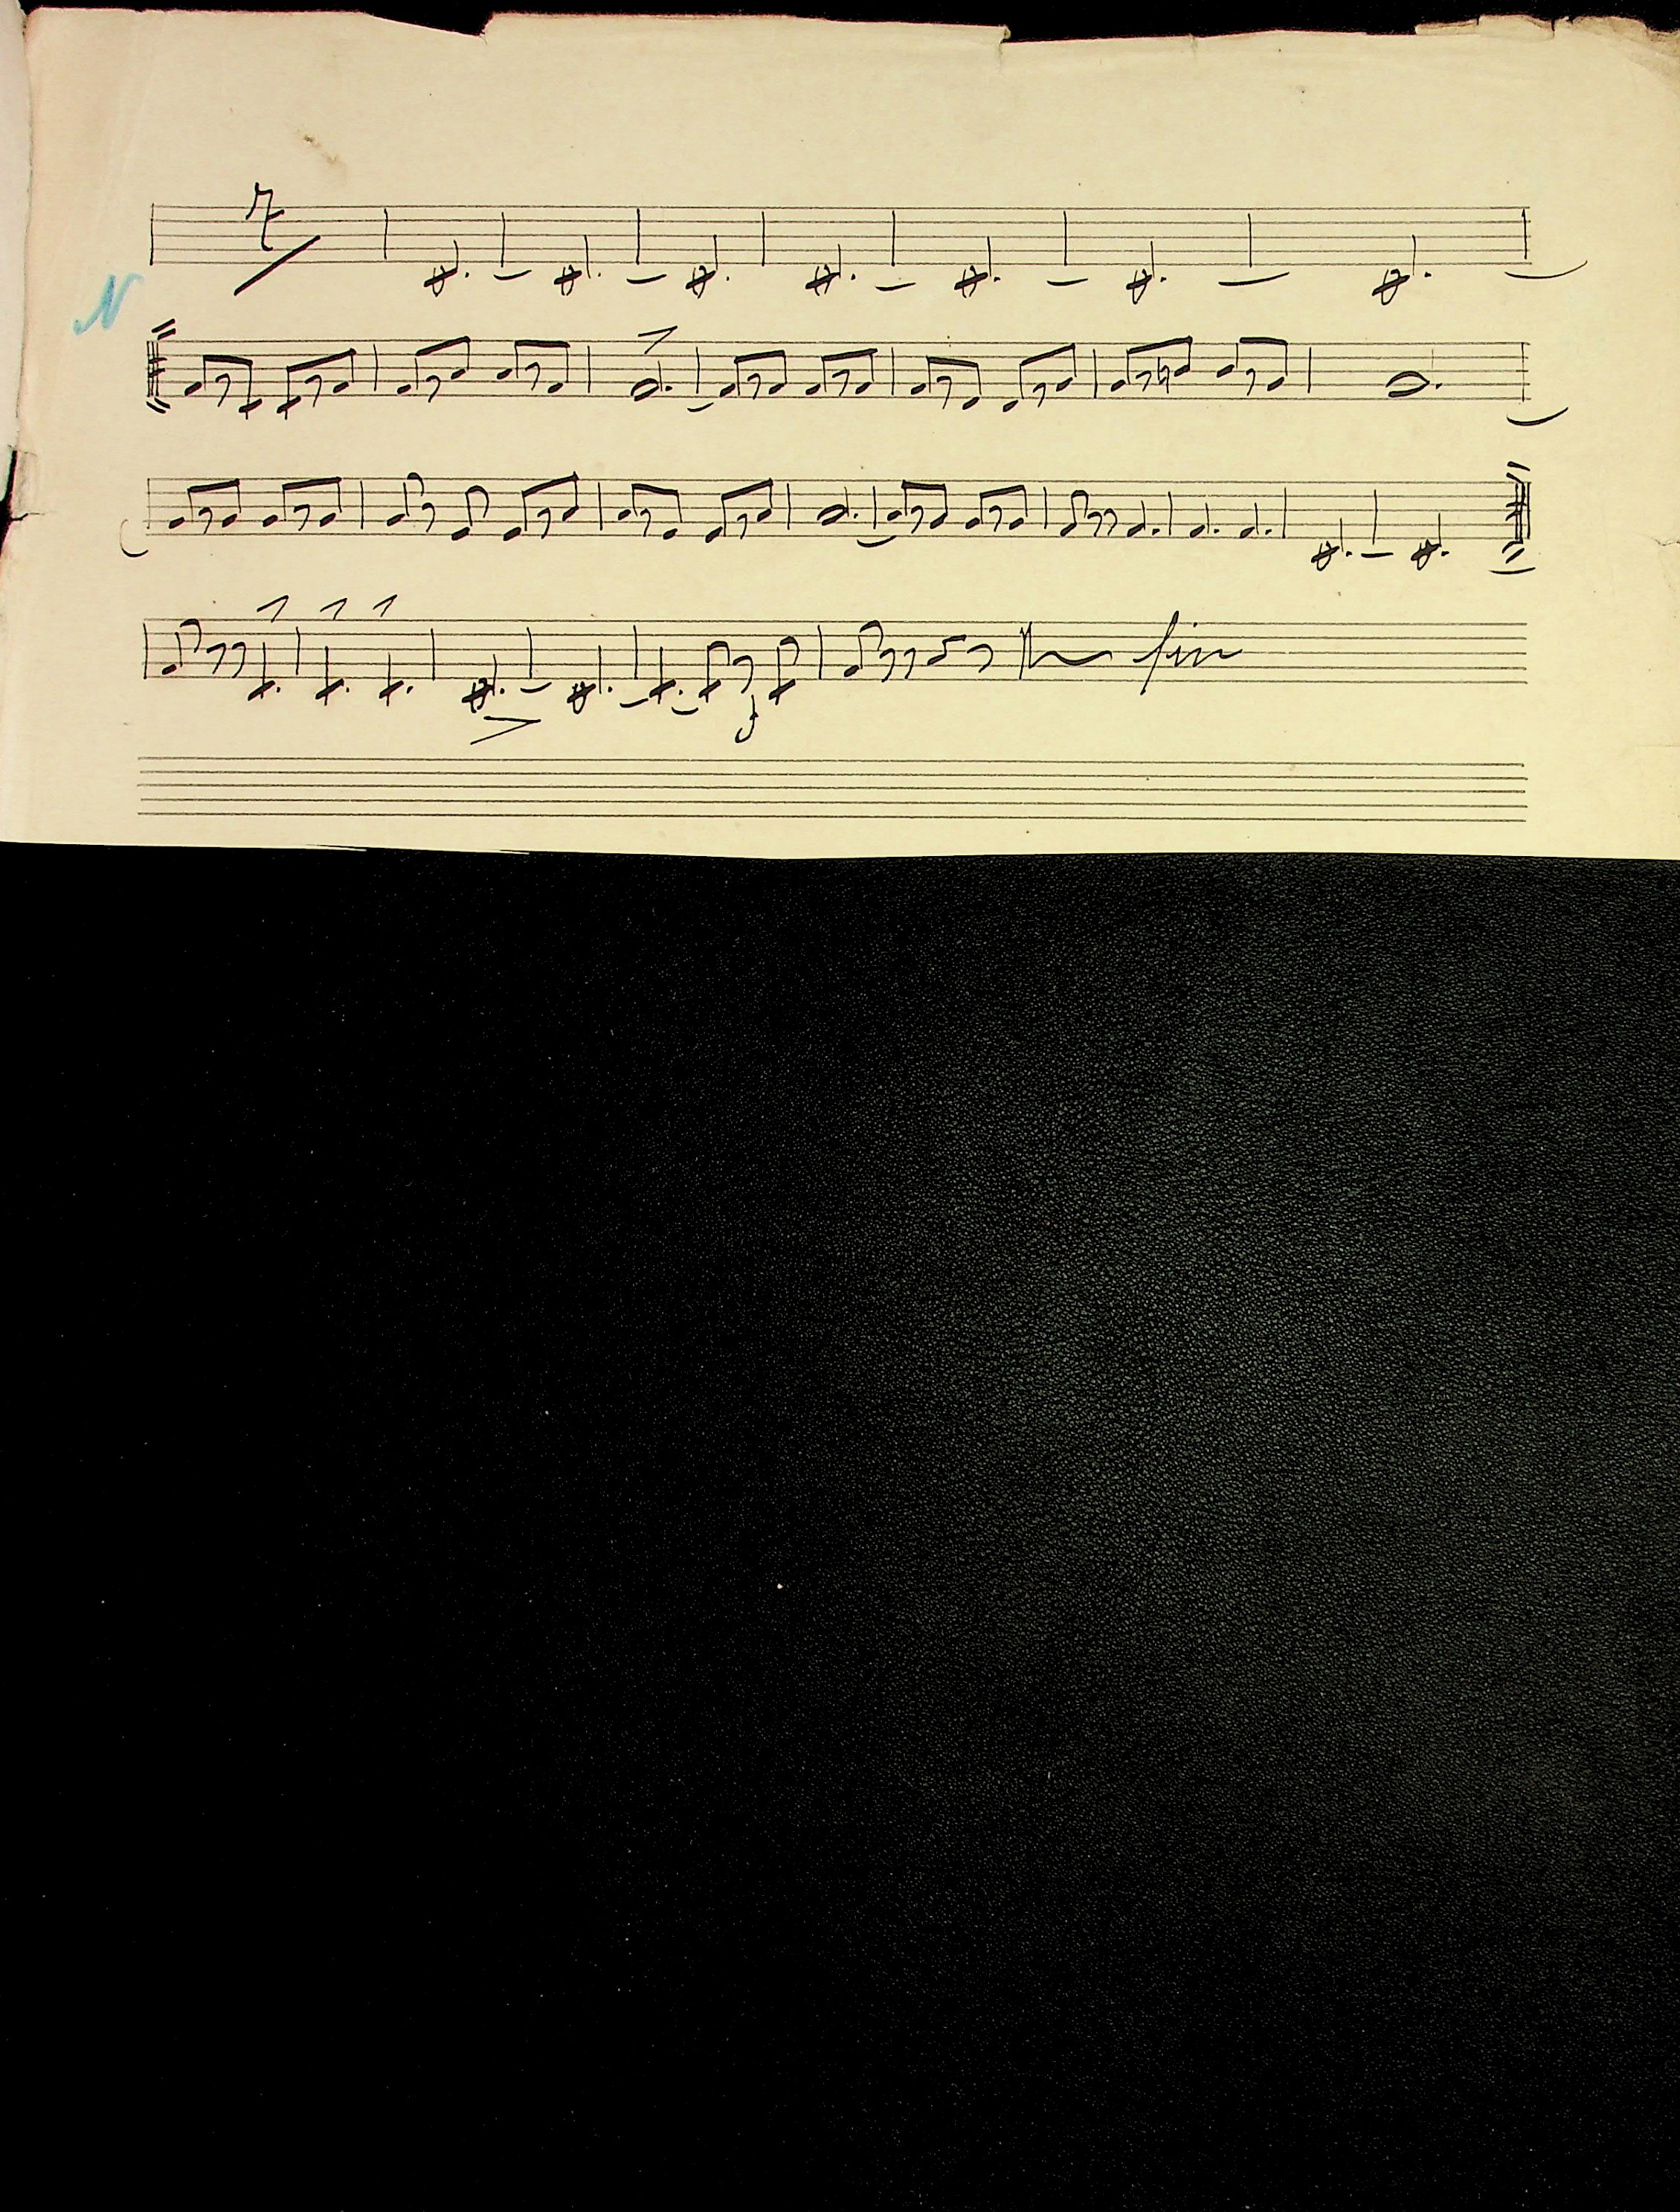 7
N
fin